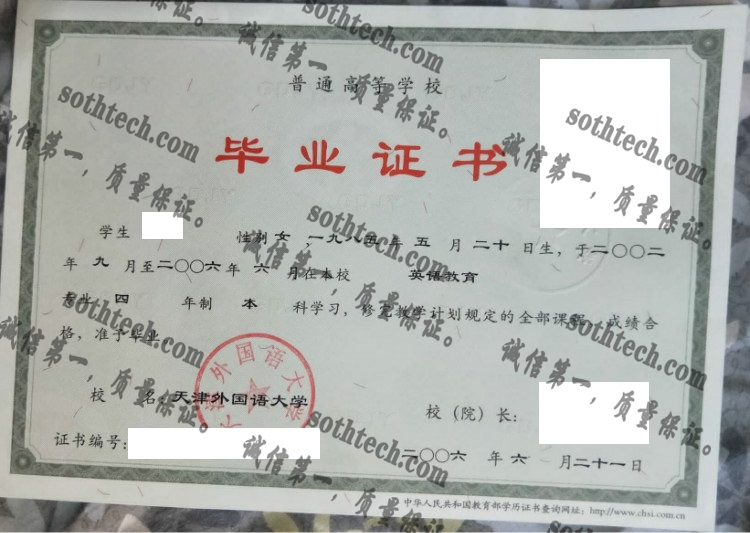 普通高等学校
毕业证书
学生 性别 女 ,一九八五年 五 月 二十 日生, 于二〇〇二
年 九 月至二〇〇六年 六 月在本校 英语教育
专业 四 年制 本 科学习, 修完教学计划规定的全部课程, 成绩合
格, 准予毕业
天津外国语大学
校 名: 天津外国语大学
校(院)长:
证书编号:
二〇〇六 年 六 月二十一日
中华人民共和国教育部学历证书查询网址: http://www.chsi.com.cn
sothtech.com
诚信第一, 质量保证。
sothtech.com
诚信第一, 质量保证。
sothtech.com
诚信第一, 质量保证。
sothtech.com
诚信第一, 质量保证。
sothtech.com
诚信第一, 质量保证。
sothtech.com
诚信第一, 质量保证。
sothtech.com
诚信第一, 质量保证。
sothtech.com
诚信第一, 质量保证。